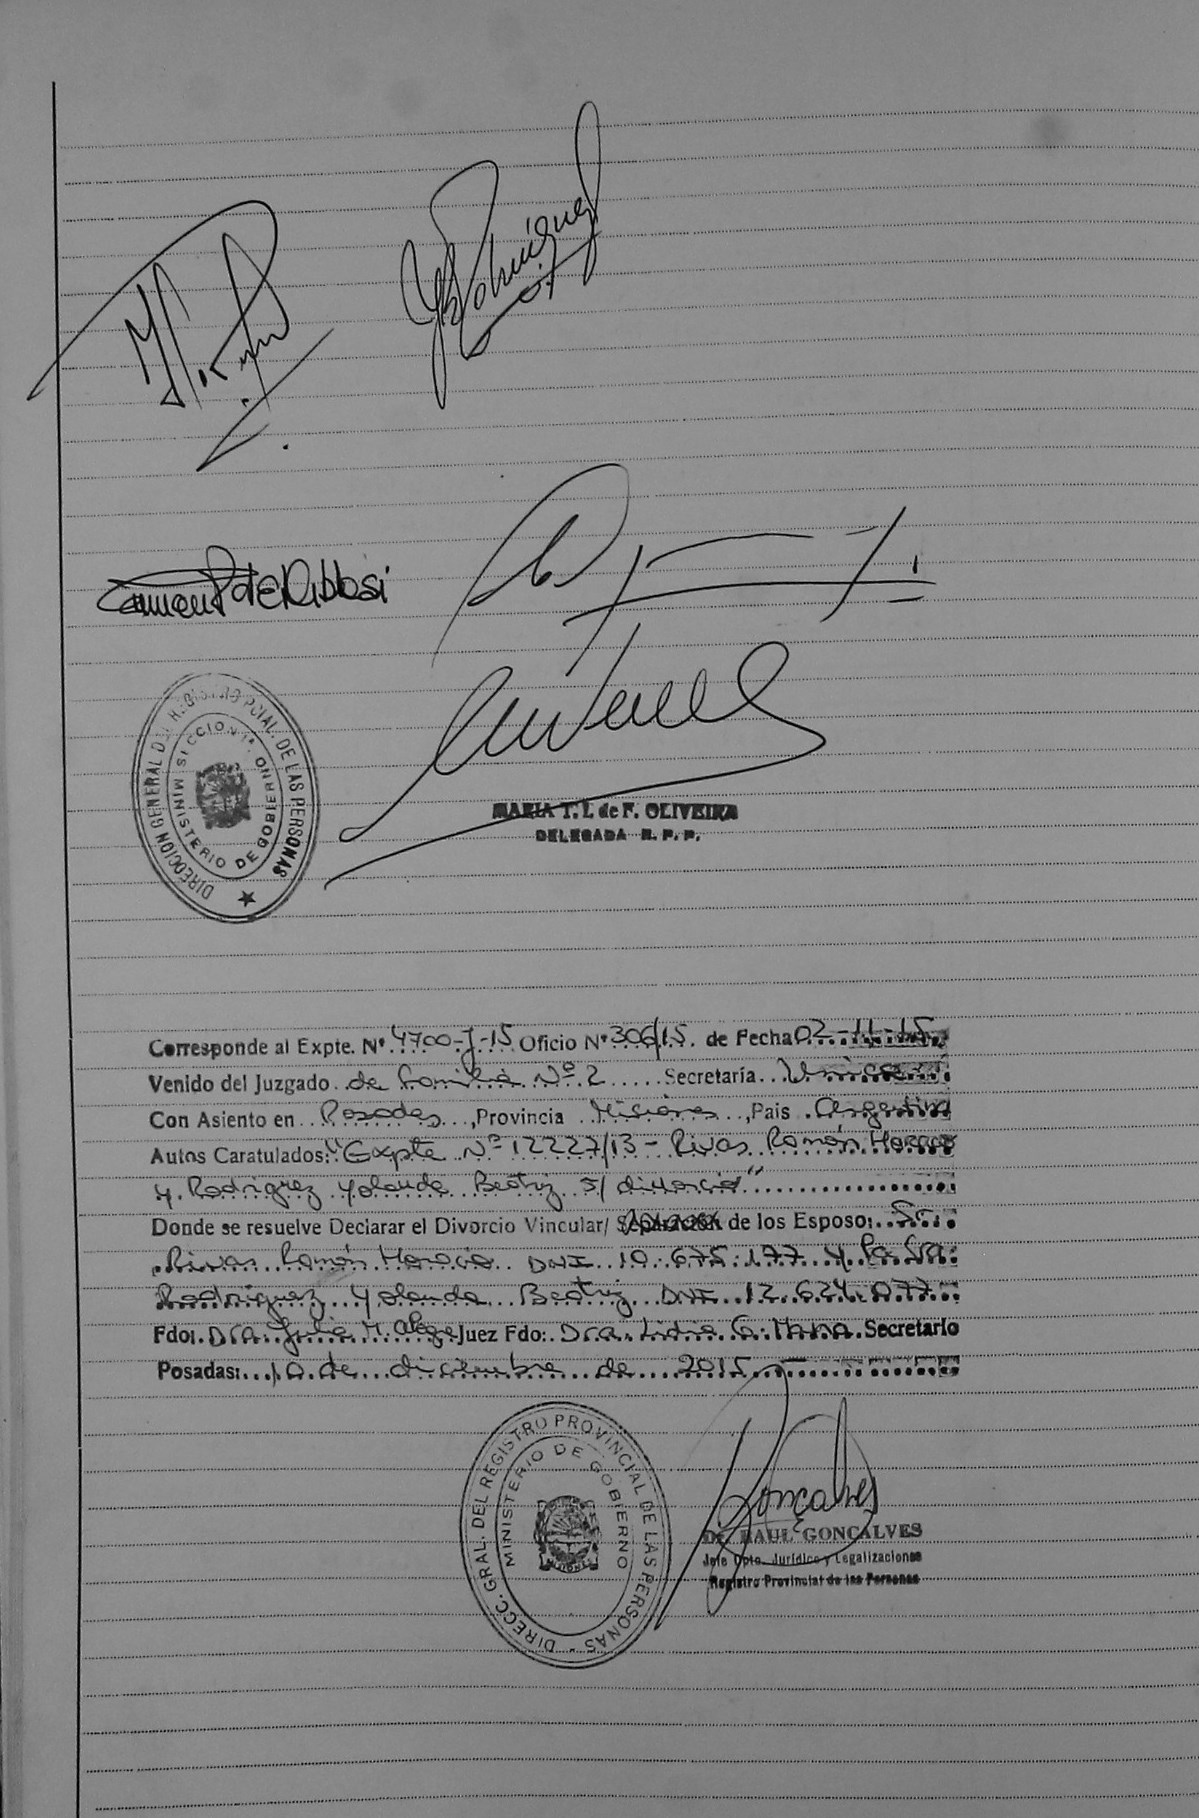 DIRECCION GENERAL DEL REGISTRO PCIAL. DE LAS PERSONAS
MINISTERIO DE GOBIERNO
SECCION 1ª
MARIA T. I. de F. OLIVEIRA
DELEGADA R. P. P.
Corresponde al Expte. Nº 4700-J-15 Oficio Nº 306/15. de Fecha 02-11-15
Venido del Juzgado de Familia Nº 2 Secretaría Unica
Con Asiento en Posadas, Provincia Misiones, Pais Argentina
Autos Caratulados: "Expte Nº 12227/13 - Rivas Ramón Horacio
y Rodriguez Yolanda Beatriz s/ divorcio"
Donde se resuelve Declarar el Divorcio Vincular/ Separación de los Esposo: Sr.
Rivas Ramón Horacio DNI 10.675.177 y la Sra.
Rodriguez Yolanda Beatriz DNI 12.624.077
Fdo: Dra. Julia M. Juez Fdo: Dra. Lidia G. Secretario
Posadas: 10 de diciembre de 2015
DIRECC. GRAL. DEL REGISTRO PROVINCIAL DE LAS PERSONAS
MINISTERIO DE GOBIERNO
MISIONES
Goncalves
Dr. RAUL E GONCALVES
Jefe Dpto. Jurídico y Legalizaciones
Registro Provincial de las Personas